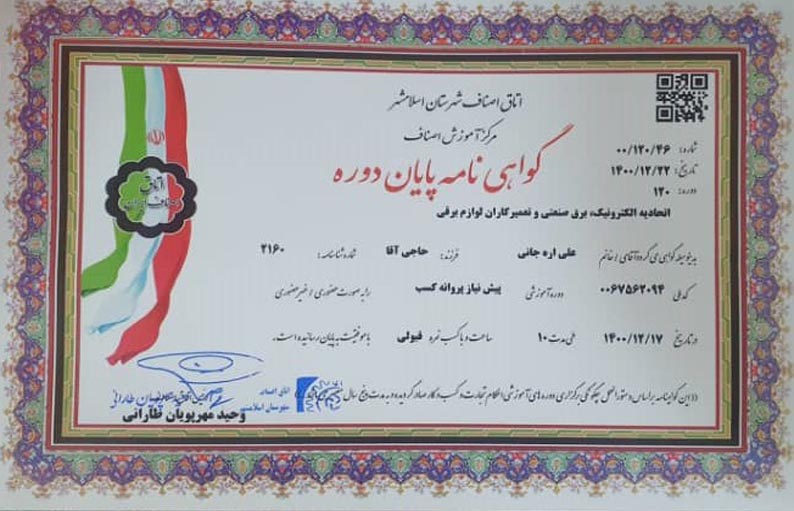 اتاق اصناف شهرستان اسلامشهر
مرکز آموزش اصناف
گواهی نامه پایان دوره
شماره: ۰۰/۱۲۰/۴۶
تاریخ: ۱۴۰۰/۱۲/۲۲
دوره: ۱۲۰
اتاق
اصناف ایران
اتحادیه الکترونیک، برق صنعتی و تعمیرکاران لوازم برقی
بدینوسیله گواهی می گردد آقای / خانم علی اره جانی فرزند: حاجی آقا شماره شناسنامه: ۲۱۶۰
کد ملی ۰۰۶۷۵۶۲۰۹۴ دوره آموزشی پیش نیاز پروانه کسب را به صورت حضوری / غیر حضوری
در تاریخ ۱۴۰۰/۱۲/۱۷ طی مدت ۱۰ ساعت و با کسب نمره قبولی با موفقیت به پایان رسانیده است.
((این گواهینامه بر اساس دستورالعمل چگونگی برگزاری دوره های آموزشی احکام تجارت و کسب و کار صادر گردیده و به مدت پنج سال
اتاق اصناف
شهرستان اسلامشهر
وحید مهرپویان طارانی